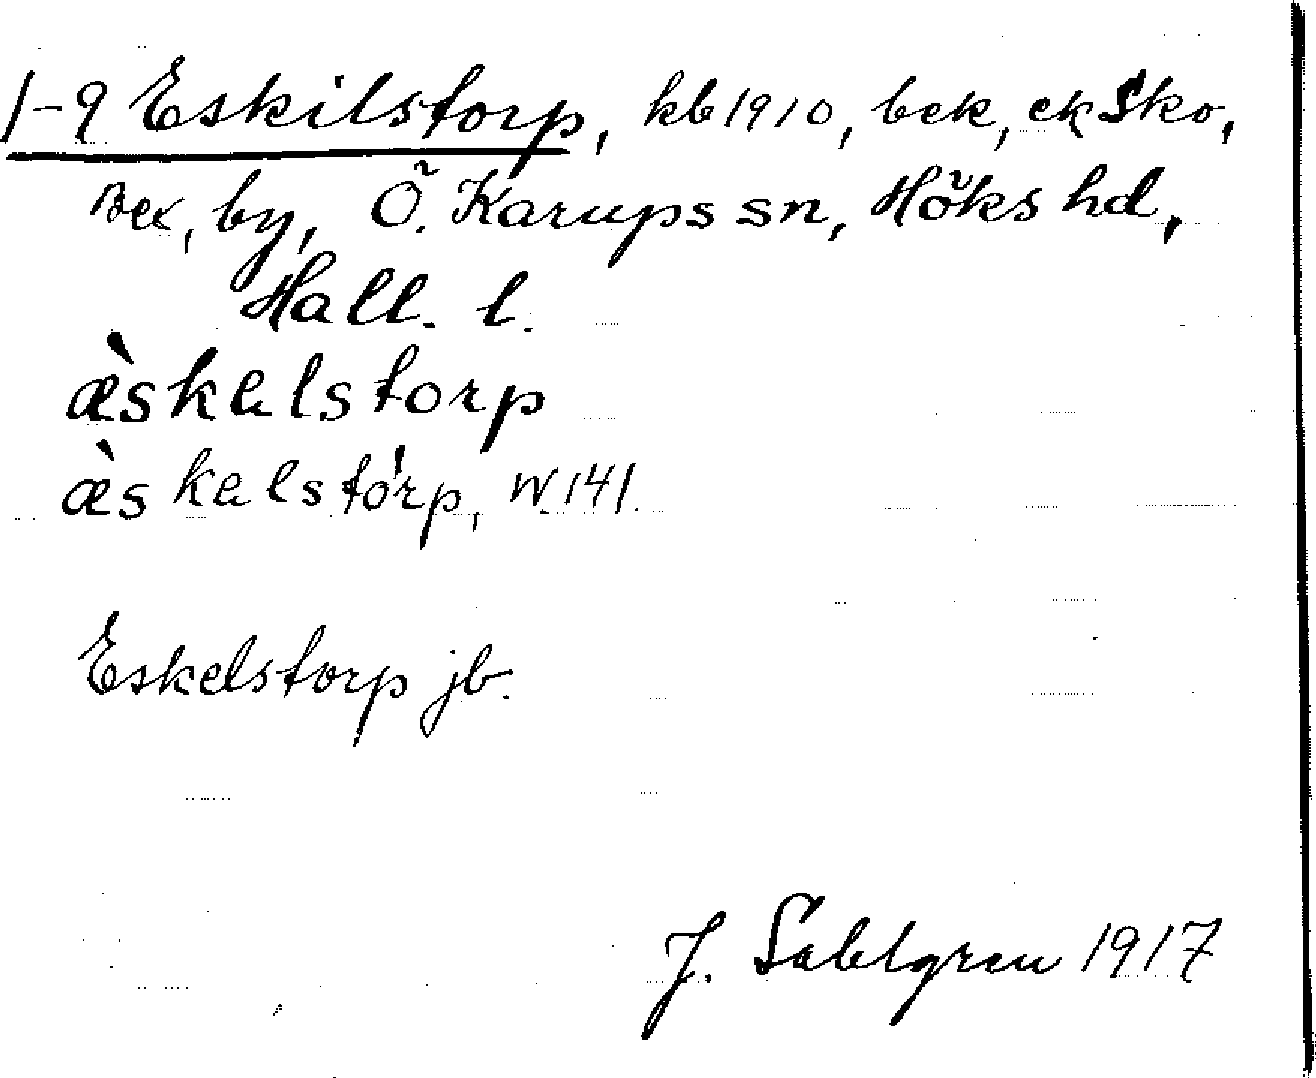 1-9 Eskilstorp, kb 1910, bek, ek Sko,
by, Ö. Karups sn, Höks hd,
Hall. l.
æ̀skəlstorp
æ̀skəlstórp, W 141.
Eskelstorp jb.
J. Sahlgren 1917